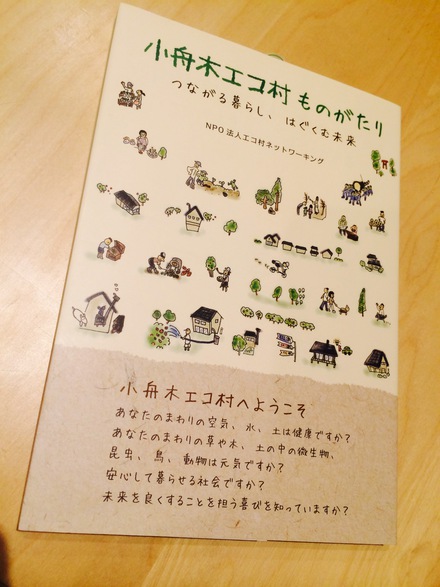 小舟木エコ村 ものがたり
つながる暮らし、はぐくむ未来
NPO法人エコ村ネットワーキング
小舟木エコ村へようこそ
あなたのまわりの空気、水、土は健康ですか?
あなたのまわりの草や木、土の中の微生物、
昆虫、鳥、動物は元気ですか?
安心して暮らせる社会ですか?
未来を良くすることを担う喜びを知っていますか?